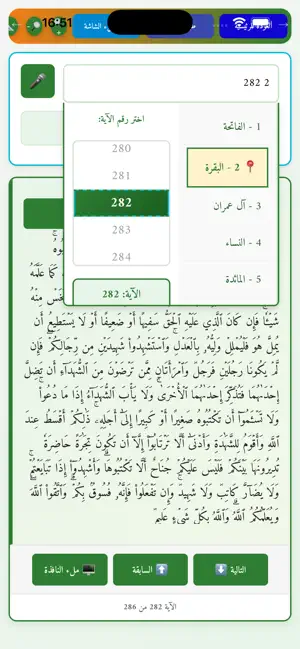 16:51
العودة للرئيسية
ء الشاشة
2 282
اختر رقم الآية:
280
281
282
283
284
الآية: 282
1 - الفاتحة
📍 2 - البقرة
3 - آل عمران
4 - النساء
5 - المائدة
شَيْـًٔا ۚ فَإِن كَانَ ٱلَّذِى عَلَيْهِ ٱلْحَقُّ سَفِيهًا أَوْ ضَعِيفًا أَوْ لَا يَسْتَطِيعُ أَن
يُمِلَّ هُوَ فَلْيُمْلِلْ وَلِيُّهُۥ بِٱلْعَدْلِ ۚ وَٱسْتَشْهِدُوا۟ شَهِيدَيْنِ مِن رِّجَالِكُمْ ۖ فَإِن
لَّمْ يَكُونَا رَجُلَيْنِ فَرَجُلٌ وَٱمْرَأَتَانِ مِمَّن تَرْضَوْنَ مِنَ ٱلشُّهَدَآءِ أَن تَضِلَّ
إِحْدَىٰهُمَا فَتُذَكِّرَ إِحْدَىٰهُمَا ٱلْأُخْرَىٰ ۚ وَلَا يَأْبَ ٱلشُّهَدَآءُ إِذَا مَا دُعُوا۟ ۚ
وَلَا تَسْـَٔمُوٓا۟ أَن تَكْتُبُوهُ صَغِيرًا أَوْ كَبِيرًا إِلَىٰٓ أَجَلِهِۦ ۚ ذَٰلِكُمْ أَقْسَطُ عِندَ
ٱللَّهِ وَأَقْوَمُ لِلشَّهَٰدَةِ وَأَدْنَىٰٓ أَلَّا تَرْتَابُوٓا۟ ۖ إِلَّآ أَن تَكُونَ تِجَٰرَةً حَاضِرَةً
تُدِيرُونَهَا بَيْنَكُمْ فَلَيْسَ عَلَيْكُمْ جُنَاحٌ أَلَّا تَكْتُبُوهَا ۗ وَأَشْهِدُوٓا۟ إِذَا تَبَايَعْتُمْ ۚ
وَلَا يُضَآرَّ كَاتِبٌ وَلَا شَهِيدٌ ۚ وَإِن تَفْعَلُوا۟ فَإِنَّهُۥ فُسُوقٌۢ بِكُمْ ۗ وَٱتَّقُوا۟ ٱللَّهَ ۖ
وَيُعَلِّمُكُمُ ٱللَّهُ ۗ وَٱللَّهُ بِكُلِّ شَىْءٍ عَلِيمٌ
⬇️ التالية
⬆️ السابقة
🖥️ ملء النافذة
الآية 282 من 286